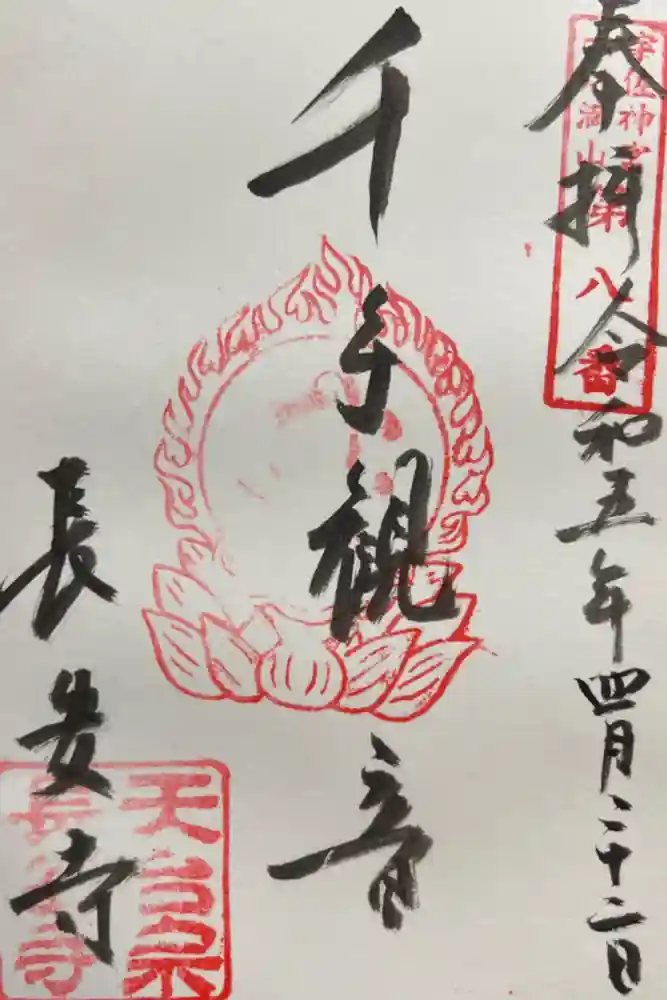 奉拝 令和五年四月二十二日
宇佐神宮
六郷満山
第八番
千手観音
長安寺
天台宗
長安寺